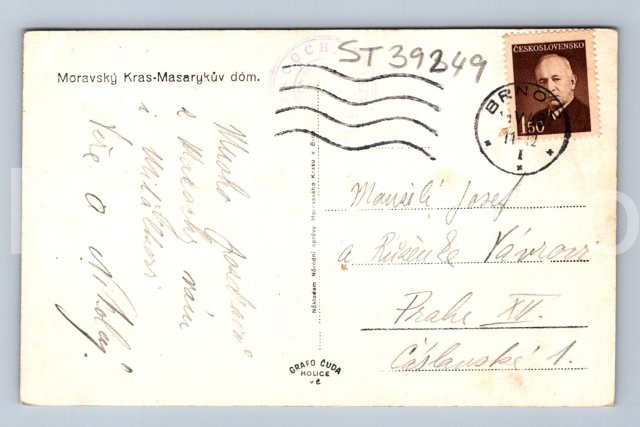 Moravský Kras-Masarykův dóm.
ST 39249
ČESKOSLOVENSKO
1.50
BRNO
Mnoho pozdravů
z Macochy vám
i
Věře a Nikolaj
Nákladem Národní správy Moravského Krasu v Brně
GRAFO ČUDA
HOLICE
Manželé Josef
a Růženka Vávrovi
Praha XII.
Čáslavská 1.